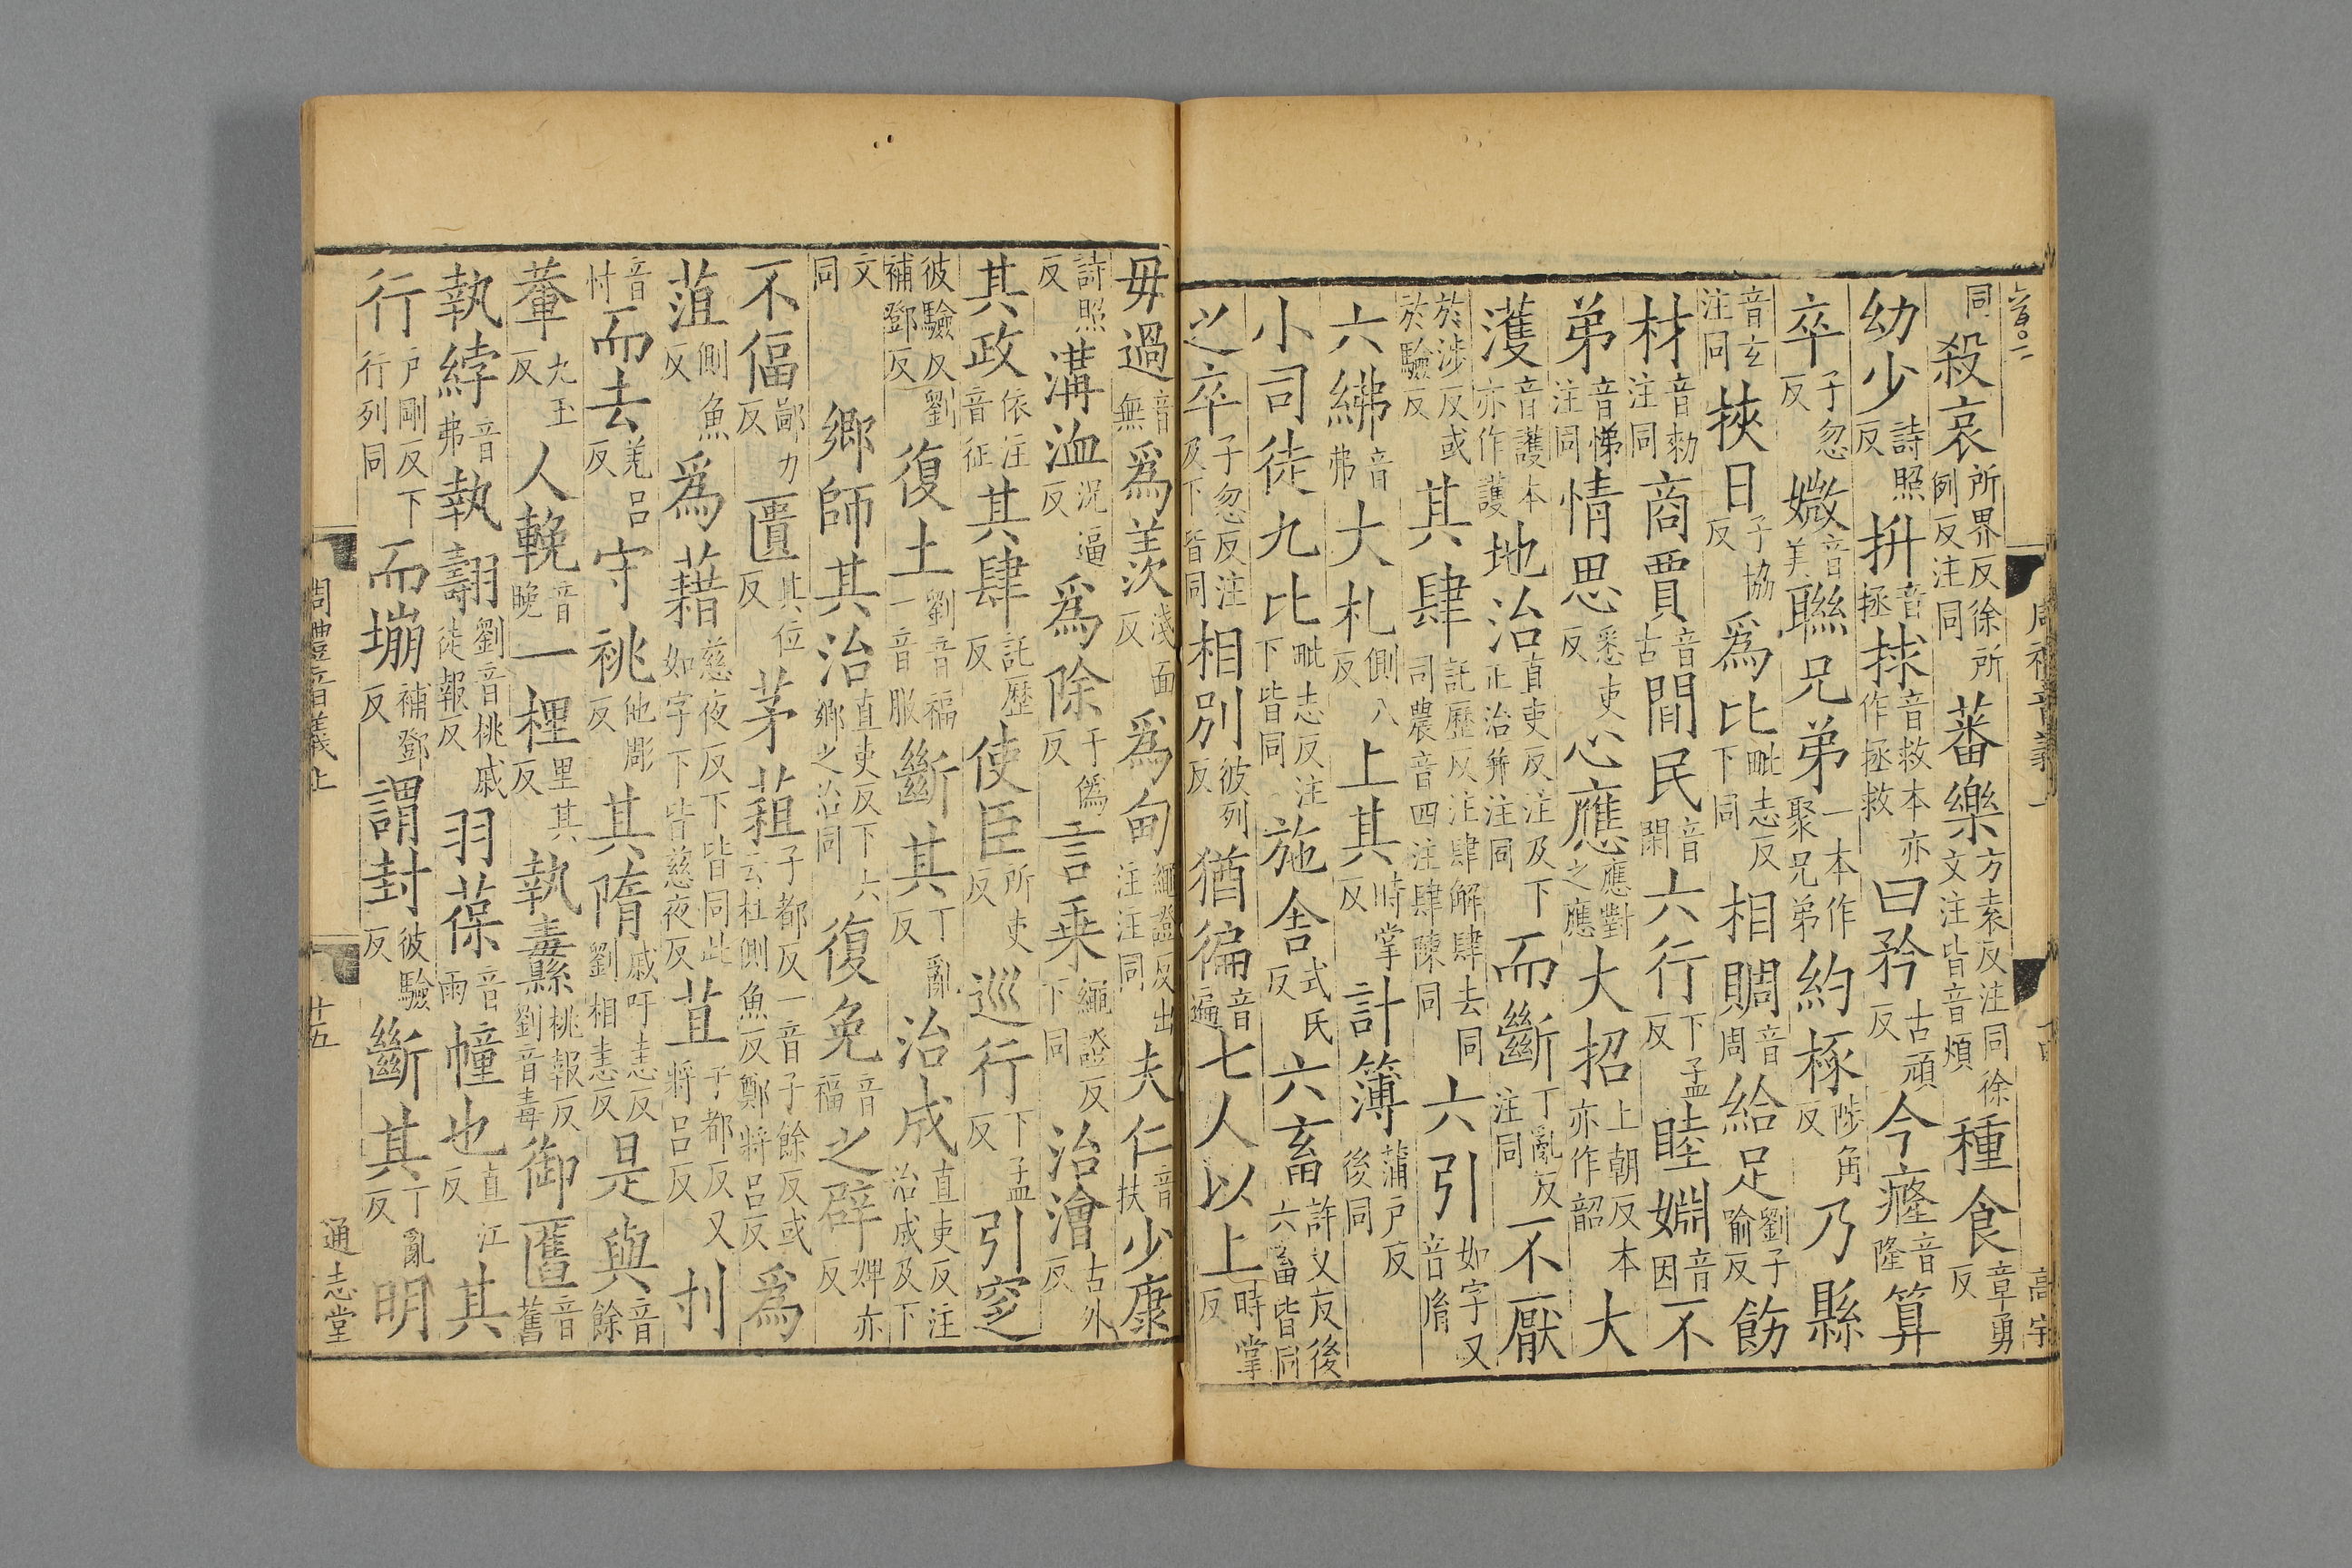 同殺哀所界反徐所例反注同蕃樂方素反注同徐文注皆音煩種食章勇反
幼少詩照反拼音拯捄音救本亦作拯救曰矜古頑反今癃音隆算
卒子忽反媺音美聯兄弟一本作聚兄弟約椓陟角反乃縣
音玄注同挾日子協反爲比毗志反下同相賙音周給足劉子喻反飭
材音勑注同商賈音古閒民音閑六行下孟反睦婣音因不
弟音悌注同情思悉吏反心應應對之應大招上朝反本亦作韶大
濩音護本亦作護地治直吏反注及下正治并注同而斷丁亂反注同不厭
於涉反或於驗反其肆託歷反注肆解肆去同司農音四注肆陳同六引如字又音胤
六紼音弗大札側八反上其時掌反計簿蒲戶反後同
小司徒九比毗志反注下皆同施舍式氏反六畜許又反後六畜皆同
之卒子忽反注及下皆同相別彼列反猶徧音遍七人以上時掌反
毋過音無爲羨淺面反爲甸繩證反出注注同夫仁音扶少康
詩照反溝洫況逼反爲除于僞反言乗繩證反下同治澮古外反
其政依注音征其肆託歷反使臣所吏反巡行下孟反引窆
彼驗反劉補鄧反復土劉音福一音服斷其丁亂反治成直吏反注治成及下
文同鄉師其治直吏反下六鄉之治同復免音福之辟婢亦反
不偪鄙力反匱其位反茅蒩子都反一音子餘反或云杜側魚反鄭將呂反爲
菹側魚反爲藉慈夜反下皆同此如字下皆慈夜反苴子都反又將呂反刌
音忖而去羌呂反守祧他彫反其隋戚吁恚反劉相恚反是與音餘
輂九玉反人輓音晚一梩里其反執纛桃報反劉音毒御匶音舊
執綍音弗執翿劉音桃戚徒報反羽葆音雨幢也直江反其
行戶剛反下行列同而堋補鄧反謂封彼驗反斷其丁亂反明
周禮音義上
十五
通志堂